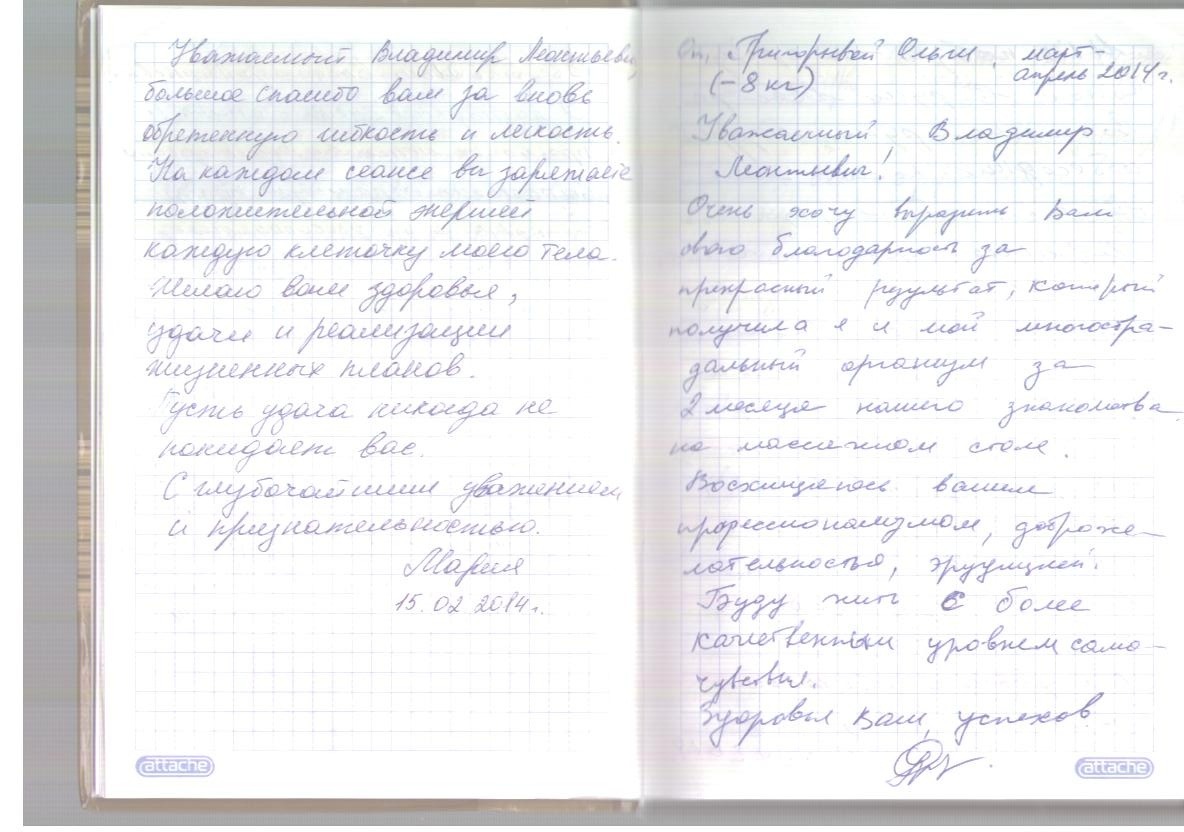 Уважаемый Владимир Леонтьеви
большое спасибо вам за вновь
обретенную гибкость и легкость.
На каждом сеансе вы заряжаете
положительной энергией
каждую клеточку моего тела.
Желаю вам здоровья,
удачи и реализации
жизненных планов.
Пусть удача никогда не
покидает вас.
С глубочайшим уважением
и признательностью.
Мария
15.02 2014г.
attache
От, Григорьевой Ольги. март-
(-8 кг) апрель 2014г.
Уважаемый, Владимир
Леонтьевич!
Очень хочу выразить Вам
свою благодарность за
прекрасный результат, который
получила я и мой многостра-
дальный организм за
2 месяца нашего знакомства
на массажном столе.
Восхищаюсь вашим
профессионализмом, доброже-
лательностью, эрудицией.
Буду жить с более
качественным уровнем само-
чувствия.
Здоровья Вам, успехов
attache